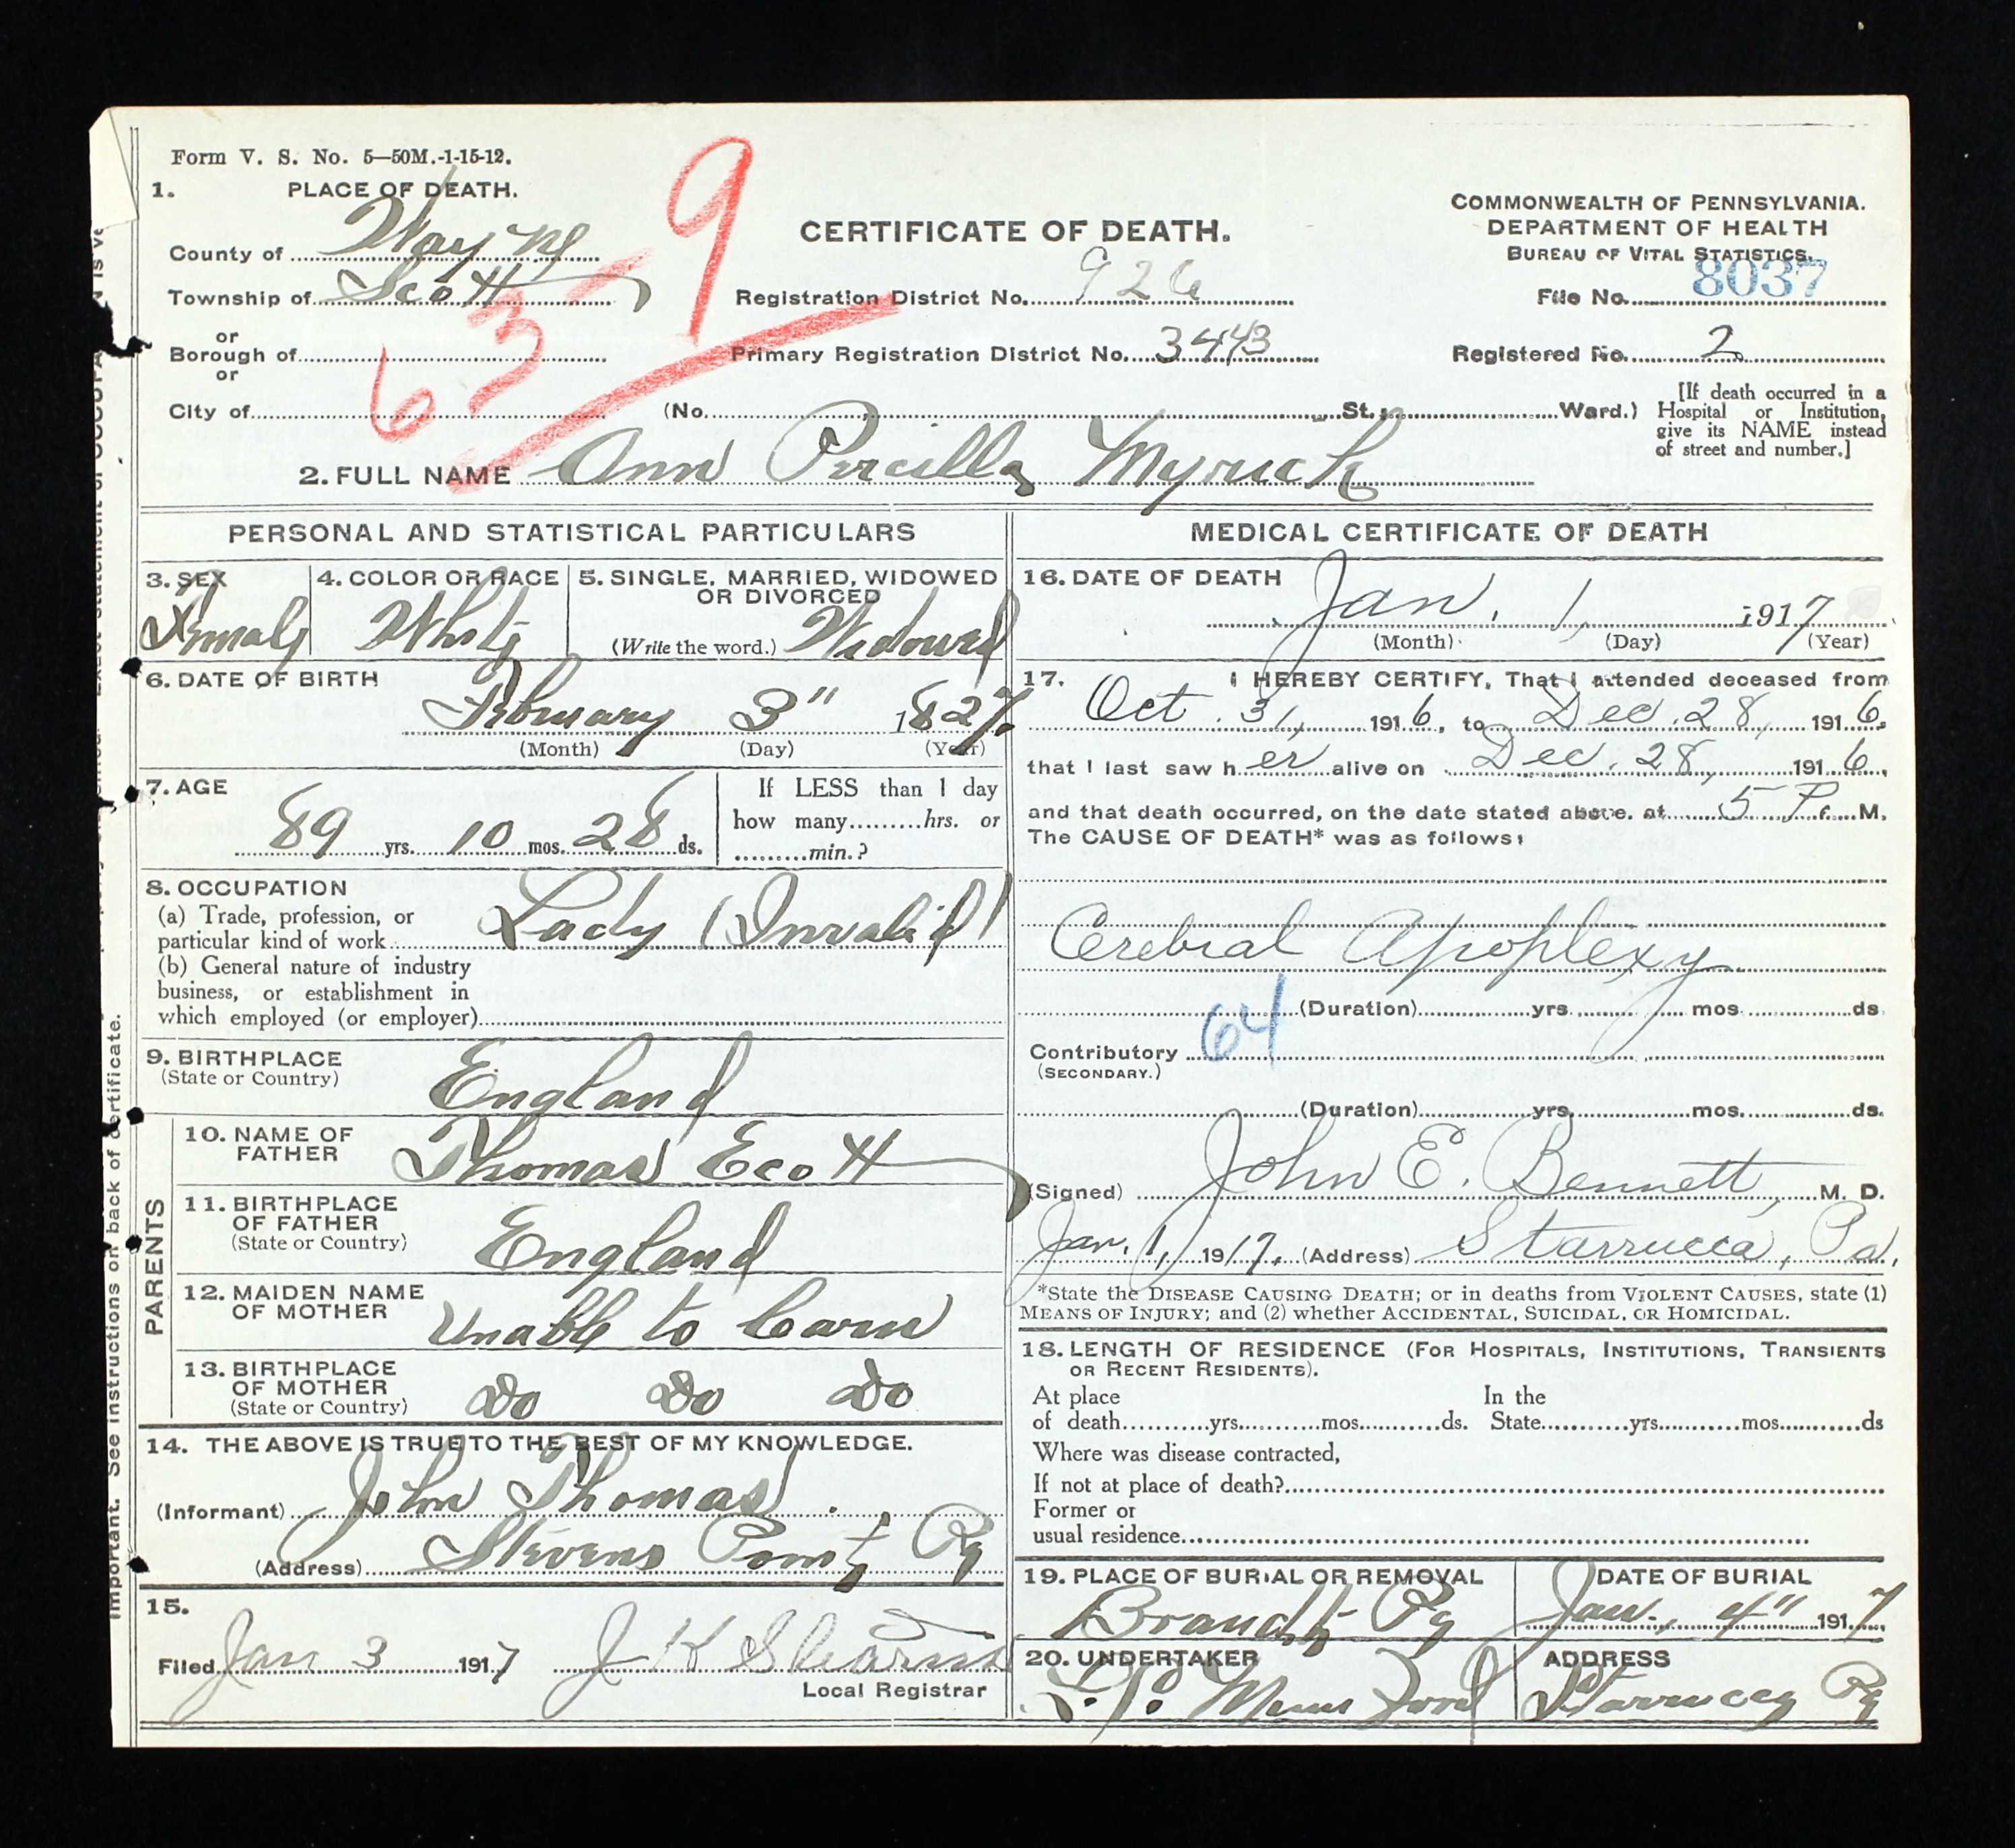 Form V. S. No. 5—50M.-1-15-12.
1. PLACE OF DEATH.
County of Wayne
Township of Scott
or
Borough of
or
City of
639
CERTIFICATE OF DEATH.
Registration District No. 926
Primary Registration District No. 3443
(No. St., Ward.)
COMMONWEALTH OF PENNSYLVANIA.
DEPARTMENT OF HEALTH
BUREAU OF VITAL STATISTICS.
File No. 8037
Registered No. 2
[If death occurred in a
Hospital or Institution,
give its NAME instead
of street and number.]
2. FULL NAME Ann Percilla Myrick
PERSONAL AND STATISTICAL PARTICULARS
3. SEX
Female
4. COLOR OR RACE
White
5. SINGLE, MARRIED, WIDOWED
OR DIVORCED
(Write the word.) Widowed
6. DATE OF BIRTH
February 3" 1827
(Month) (Day) (Year)
7. AGE
89 yrs. 10 mos. 28 ds.
If LESS than 1 day
how many hrs. or
min.?
8. OCCUPATION
(a) Trade, profession, or
particular kind of work Lady (Invalid)
(b) General nature of industry
business, or establishment in
which employed (or employer)
9. BIRTHPLACE
(State or Country) England
PARENTS
10. NAME OF
FATHER Thomas Ecott
11. BIRTHPLACE
OF FATHER
(State or Country) England
12. MAIDEN NAME
OF MOTHER Unable to learn
13. BIRTHPLACE
OF MOTHER
(State or Country) Do Do Do
14. THE ABOVE IS TRUE TO THE BEST OF MY KNOWLEDGE.
(Informant) John Thomas
(Address) Stevens Point Pa
15.
Filed Jan 3 1917 J K Stearns
Local Registrar
MEDICAL CERTIFICATE OF DEATH
16. DATE OF DEATH
Jan. 1, 1917
(Month) (Day) (Year)
17. I HEREBY CERTIFY, That I attended deceased from
Oct. 31, 1916, to Dec. 28, 1916,
that I last saw her alive on Dec. 28, 1916,
and that death occurred, on the date stated above. at 5 P. M.
The CAUSE OF DEATH* was as follows:
Cerebral Apoplexy
(Duration) yrs. mos. ds.
64
Contributory
(SECONDARY.)
(Duration) yrs. mos. ds.
(Signed) John E. Bennett, M. D.
Jan. 1, 1917. (Address) Starrucca, Pa.
*State the DISEASE CAUSING DEATH; or in deaths from VIOLENT CAUSES, state (1)
MEANS OF INJURY; and (2) whether ACCIDENTAL, SUICIDAL, OR HOMICIDAL.
18. LENGTH OF RESIDENCE (FOR HOSPITALS, INSTITUTIONS, TRANSIENTS
OR RECENT RESIDENTS).
At place In the
of death yrs. mos. ds. State yrs. mos. ds
Where was disease contracted,
If not at place of death?
Former or
usual residence
19. PLACE OF BURIAL OR REMOVAL
Brandt Pa
DATE OF BURIAL
Jan. 4" 1917
20. UNDERTAKER
ADDRESS
Starrucca Pa
important. See instructions on back of certificate.